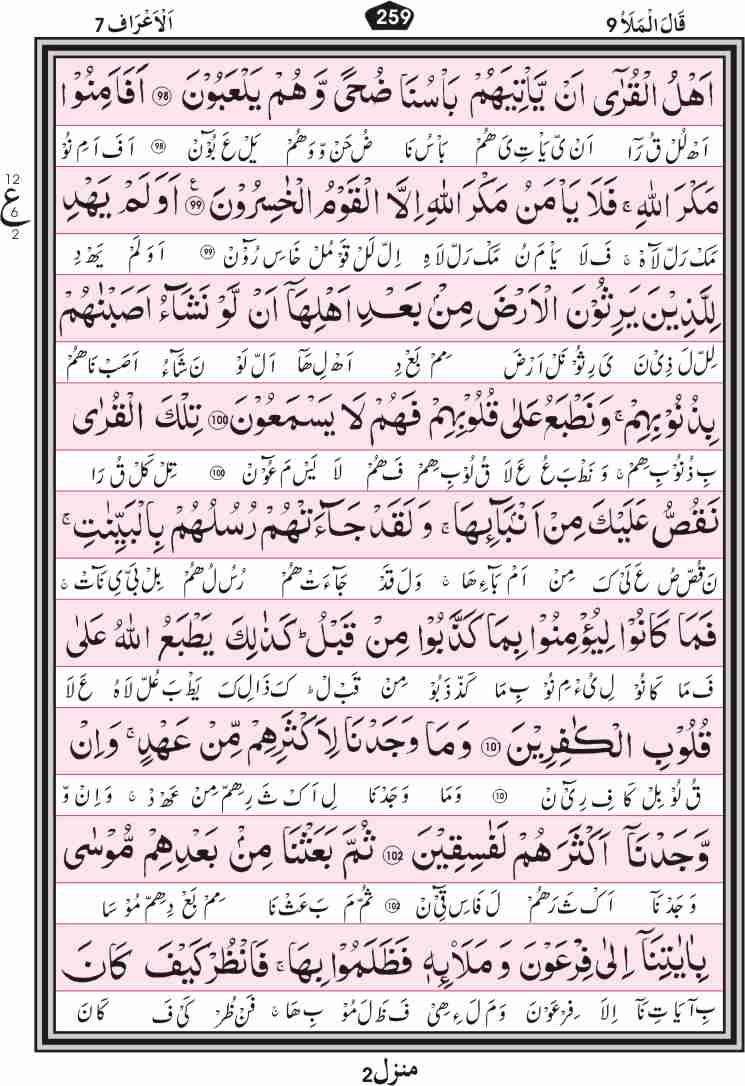 قَالَ الْمَلَاُ 9
259
اَلْاَعْرَاف 7
اَهْلُ الْقُرٰٓى اَنْ يَّاْتِيَهُمْ بَاْسُنَا ضُحًى وَّهُمْ يَلْعَبُوْنَ ﴿98﴾ اَفَاَمِنُوْا
اَهْ لُلْ قُ رَآ اَنْ یّ یَاْ تِ یَ هُمْ بَاْ سُ نَا ضُ حَنْ وّ وَهُمْ یَلْ عَ بُوْنْ ﴿98﴾ اَ فَ اَ مِ نُوْ
مَكْرَ اللّٰهِ ۚ فَلَا يَاْمَنُ مَكْرَ اللّٰهِ اِلَّا الْقَوْمُ الْخٰسِرُوْنَ ﴿99﴾ ع اَوَلَمْ يَهْدِ
12
ع
6
2
مَكْ رَلّ لَاهْ ۚ فَ لَا یَاْ مَ نُ مَكْ رَلّ لَاهِ اِلّ لَلْ قَوْ مُلْ خَاسِ رُوْنْ ﴿99﴾ اَوَ لَمْ یَهْ دِ
لِلَّذِيْنَ يَرِثُوْنَ الْاَرْضَ مِنْۢ بَعْدِ اَهْلِهَاۤ اَنْ لَّوْ نَشَآءُ اَصَبْنٰهُمْ
لِلّ لَ ذِیْ نَ یَ رِ ثُوْ نَلْ اَرْضَ مِمْ بَعْ دِ اَهْ لِ هَاۤ اَلّ لَوْ نَ شَآءُ اَصَبْ نَا هُمْ
بِذُنُوْبِهِمْ ۚ وَنَطْبَعُ عَلٰى قُلُوْبِهِمْ فَهُمْ لَا يَسْمَعُوْنَ ﴿100﴾ تِلْكَ الْقُرٰى
بِ ذُ نُوْبِ هِمْ ۚ وَ نَطْ بَ عُ عَ لَا قُ لُوْبِ هِمْ فَ هُمْ لَا یَسْ مَ عُوْنْ ﴿100﴾ تِلْ كَلْ قُ رَا
نَقُصُّ عَلَيْكَ مِنْ اَنْۢبَآئِهَا ۚ وَلَقَدْ جَآءَتْهُمْ رُسُلُهُمْ بِالْبَيِّنٰتِ ۚ
نَ قُصّ صُ عَ لَیْ كَ مِنْ اَمْ بَآءِ هَا ۚ وَلَ قَدْ جَآءَتْ هُمْ رُسُ لُ هُمْ بِلْ بَیّ یِ نَاتْ ۚ
فَمَا كَانُوْا لِيُؤْمِنُوْا بِمَا كَذَّبُوْا مِنْ قَبْلُ ؕ كَذٰلِكَ يَطْبَعُ اللّٰهُ عَلٰى
فَ مَا كَا نُوْ لِ یُءْ مِ نُوْ بِ مَا كَذْ ذَ بُوْ مِنْ قَبْ لْ ؕ كَ ذَا لِ كَ یَطْ بَ عُلّ لَاهُ عَ لَا
قُلُوْبِ الْكٰفِرِيْنَ ﴿101﴾ وَمَا وَجَدْنَا لِاَكْثَرِهِمْ مِّنْ عَهْدٍ ۚ وَاِنْ
قُ لُوْ بِلْ كَا فِ رِیْ نْ ﴿10﴾ وَمَا وَ جَدْ نَا لِ اَكْ ثَ رِهِمّ مِنْ عَهْ دْ ۚ وَ اِنْ وّ
وَّجَدْنَاۤ اَكْثَرَهُمْ لَفٰسِقِيْنَ ﴿102﴾ ثُمَّ بَعَثْنَا مِنْۢ بَعْدِهِمْ مُّوْسٰى
وَ جَدْ نَاۤ اَكْ ثَ رَهُمْ لَ فَاسِ قِیْ نْ ﴿102﴾ ثُمّ مَ بَ عَثْ نَا مِمْ بَعْ دِهِمّ مُوْ سَا
بِاٰيٰتِنَاۤ اِلٰى فِرْعَوْنَ وَمَلَا۟ئِهٖ فَظَلَمُوْا بِهَا ۚ فَانْظُرْ كَيْفَ كَانَ
بِ آ یَاتِ نَآ اِلَا فِرْعَوْنَ وَ مَ لَ ءِ هِیْ فَ ظَ لَ مُوْ بِ هَا ۚ فَنْ ظُرْ كَیْ فَ كَانَ
منزل 2